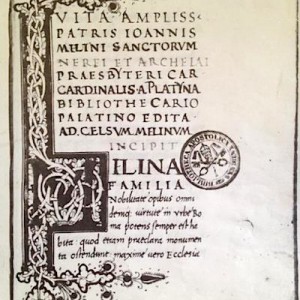 VITA AMPLISS
PATRIS IOANNIS
MELINI SANCTORVM
NEREI ET ARCHELAI
PRAESBYTERI CAR
CARDINALIS·A PLATYNA
BIBLIOTHECARIO
PALATINO EDITA
AD·CELSVM·MELINVM
INCIPIT
MILINA
FAMILIA
Nobilitate opibus omni
demq; virtute in vrbe Ro
ma potens semper et ha
bita quod etiam praeclara monumen
ta ostendunt maxime vero Ecclesia
BIBLIOTHECA APOSTOLICA VATICANA